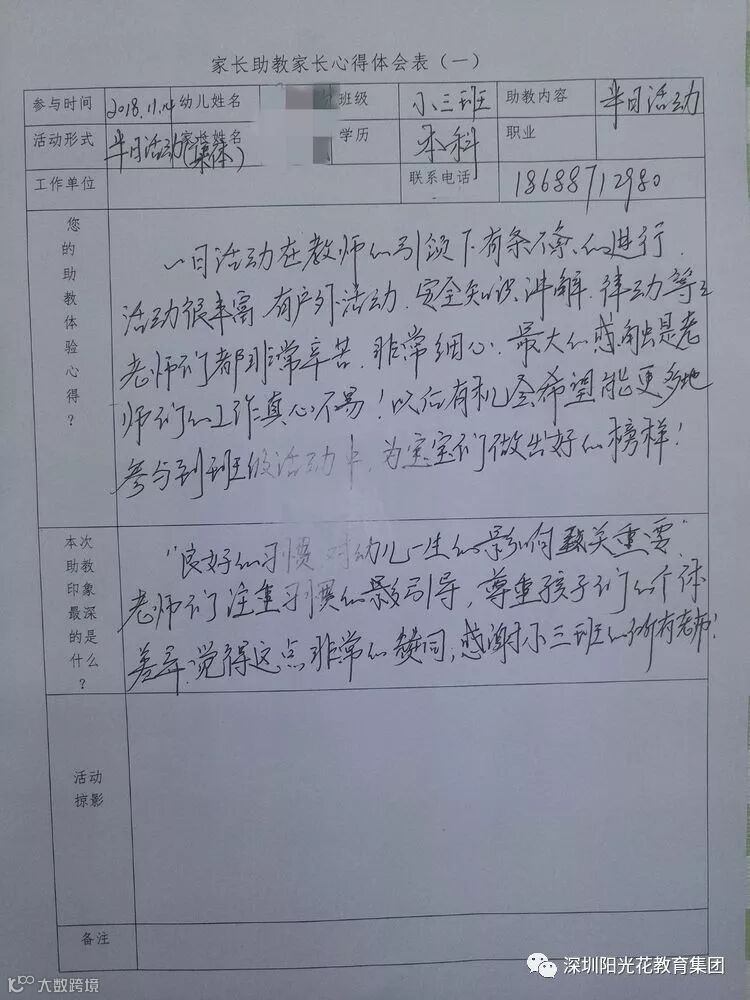 家长助教家长心得体会表（一）
参与时间 2018.11.14 幼儿姓名 班级 小三班 助教内容 半日活动
活动形式 半日活动(集体) 姓名 学历 本科 职业
工作单位 联系电话 18688712980
您的助教体验心得？
一日活动在教师的引领下有条不紊的进行.
活动很丰富,有户外活动.安全知识讲解.律动等.
老师们都非常辛苦.非常细心.最大的感触是老
师们的工作真心不易！以后有机会希望能更多地
参与到班级活动中,为宝宝们做出好的榜样！
本次助教印象最深的是什么？
"良好的习惯对幼儿一生的影响至关重要"
老师们注重习惯的引导,尊重孩子们的个体
差异.觉得这点非常的赞同,感谢小三班的所有老师！
活动掠影
备注
深圳阳光花教育集团
大数跨境